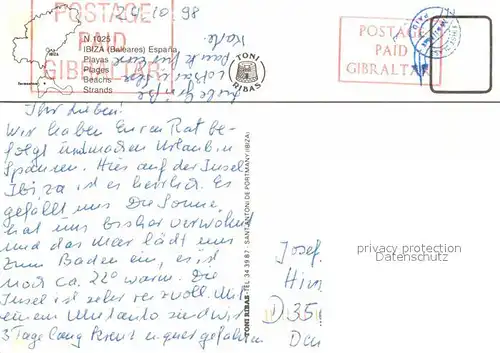 24/10 98
POSTAGE
PAID
GIBRALTAR
N 1025
IBIZA (Baleares) España
Playas
Plages
Beachs
Strands
TONI
RIBAS
POSTAGE
PAID
GIBRALTAR
Liebe Grüße
Ihr Lieben!
Wir haben Euren Rat be-
folgt und machen Urlaub in
Spanien. Hier auf der Insel
Ibiza ist es herrlich. Es
gefällt uns. Die Sonne
hat uns bisher verwöhnt
und das Meer lädt uns
zum Baden ein, es ist
noch ca. 22° warm. Die
Insel ist sehr reizvoll. Mit
einem Mietauto sind wir
3 Tage lang kreuz u. quer gefahren
TONI RIBAS - TEL. 34 39 87 - SANT ANTONI DE PORTMANY (IBIZA)
Josef
D 35
privacy protection
Datenschutz